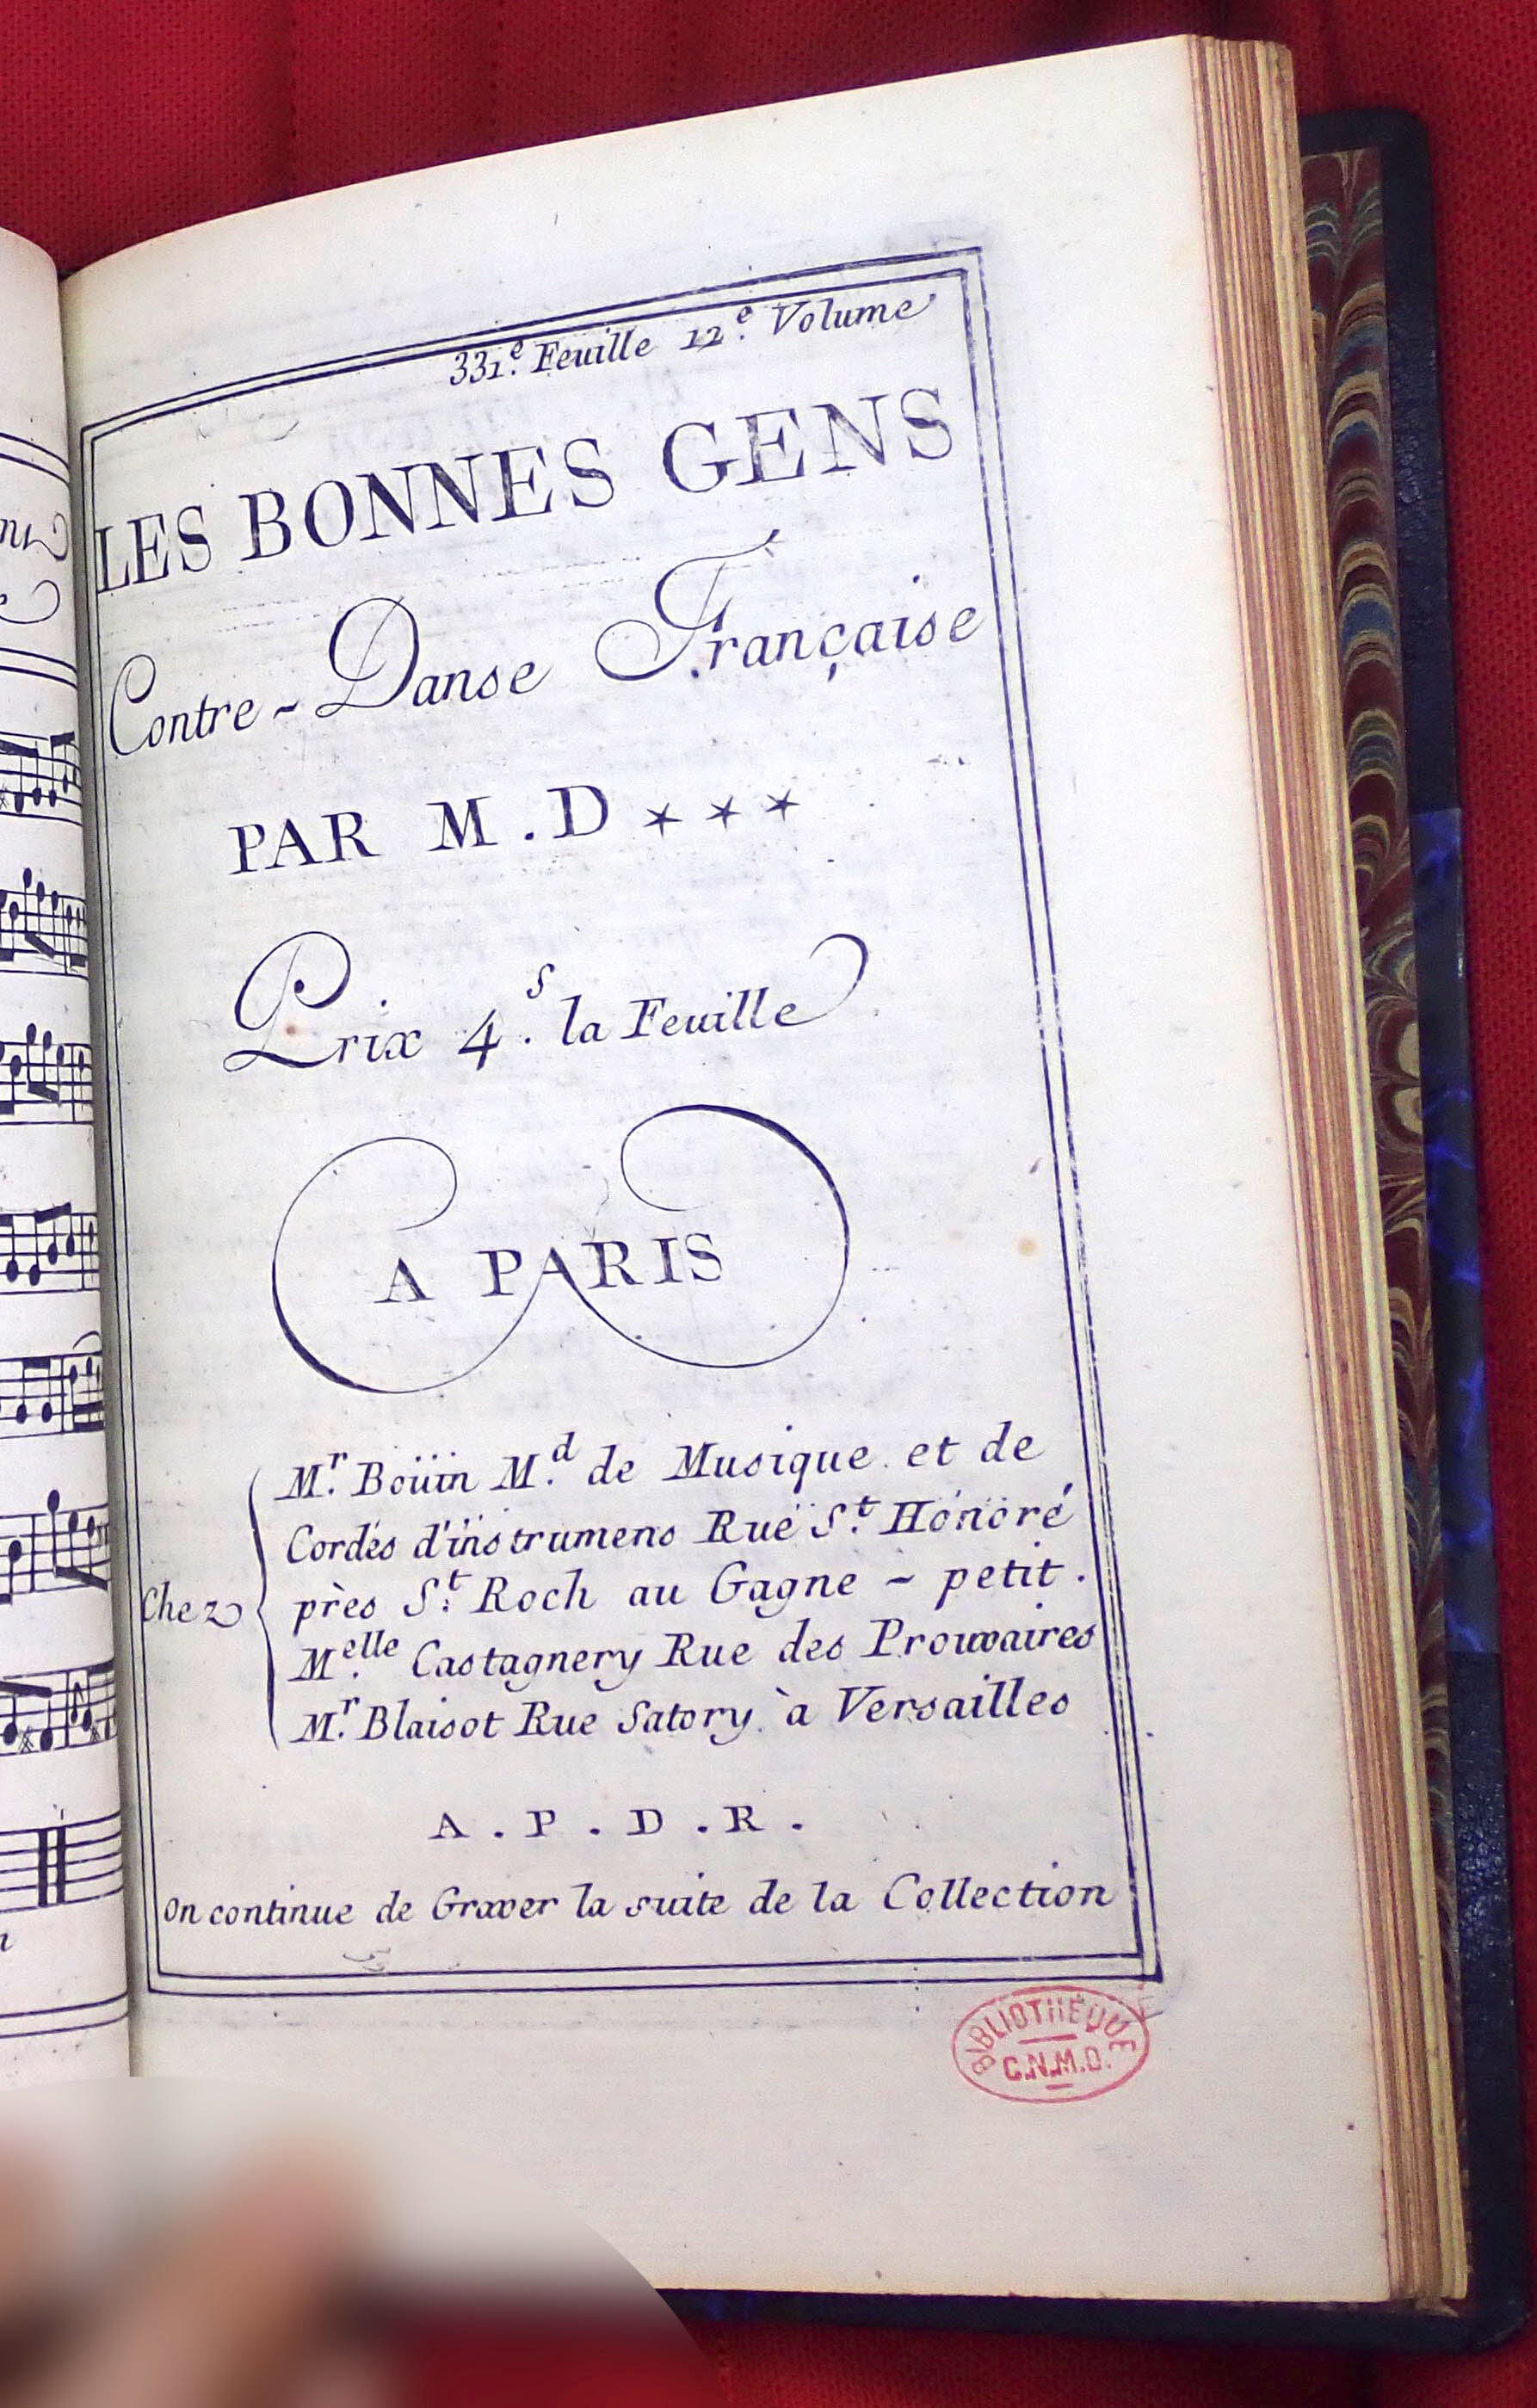 331.e Feuille 12.e Volume
LES BONNES GENS
Contre-Danse Française
PAR M. D ***
Prix 4.s la Feuille
A PARIS
Chez
M.r Boüin M.d de Musique et de
Cordes d'instrumens Rue S.t Honoré
près S.t Roch au Gagne - petit.
M.elle Castagnery Rue des Prouvaires
M.r Blaisot Rue Satory à Versailles
A . P . D . R .
On continue de Graver la suite de la Collection
BIBLIOTHÈQUE
C.N.M.D.